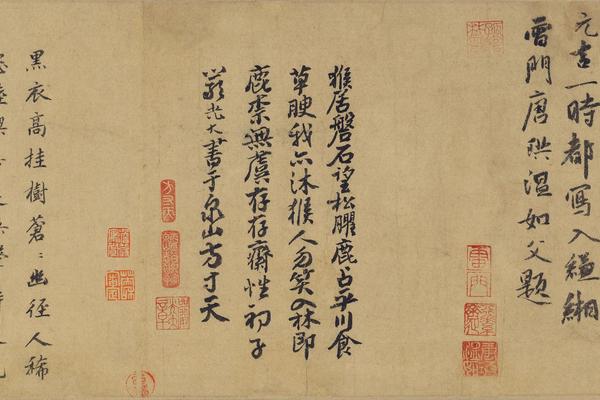 元吉一時都寫入縑緗
雷門唐珙溫如父題
猴居磐石望松臞鹿占平川食
草腴我亦沐猴人勿笑入林即
鹿柰無虞存存齋性初子
嚴光大書于泉山方寸天
黑衣高挂樹蒼〻幽徑人稀